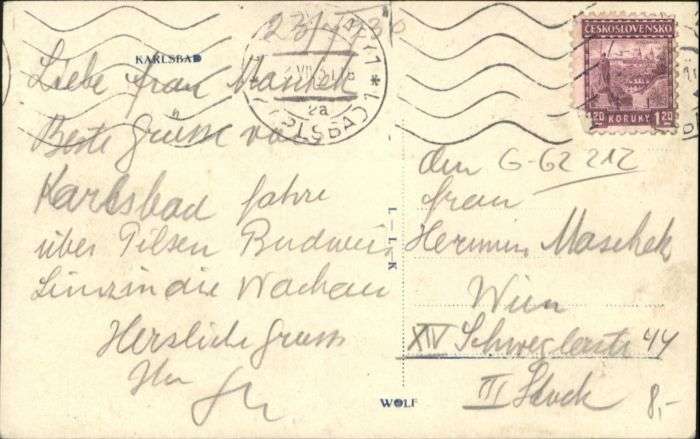 KARLSBAD
Liebe Frau Maschek
Beste Grüsse von
Karlsbad fahre
über Pilsen Budweis
Linz in die Wachau
Herzliche Grüsse
Ihr
I.-I.-K
WOLF
ČESKOSLOVENSKO
1.20 KORUNY 1.20
G-62 212
Frau
Hermin Maschek
Wien
XIV Schweglerstr 44
III Stock
8,-